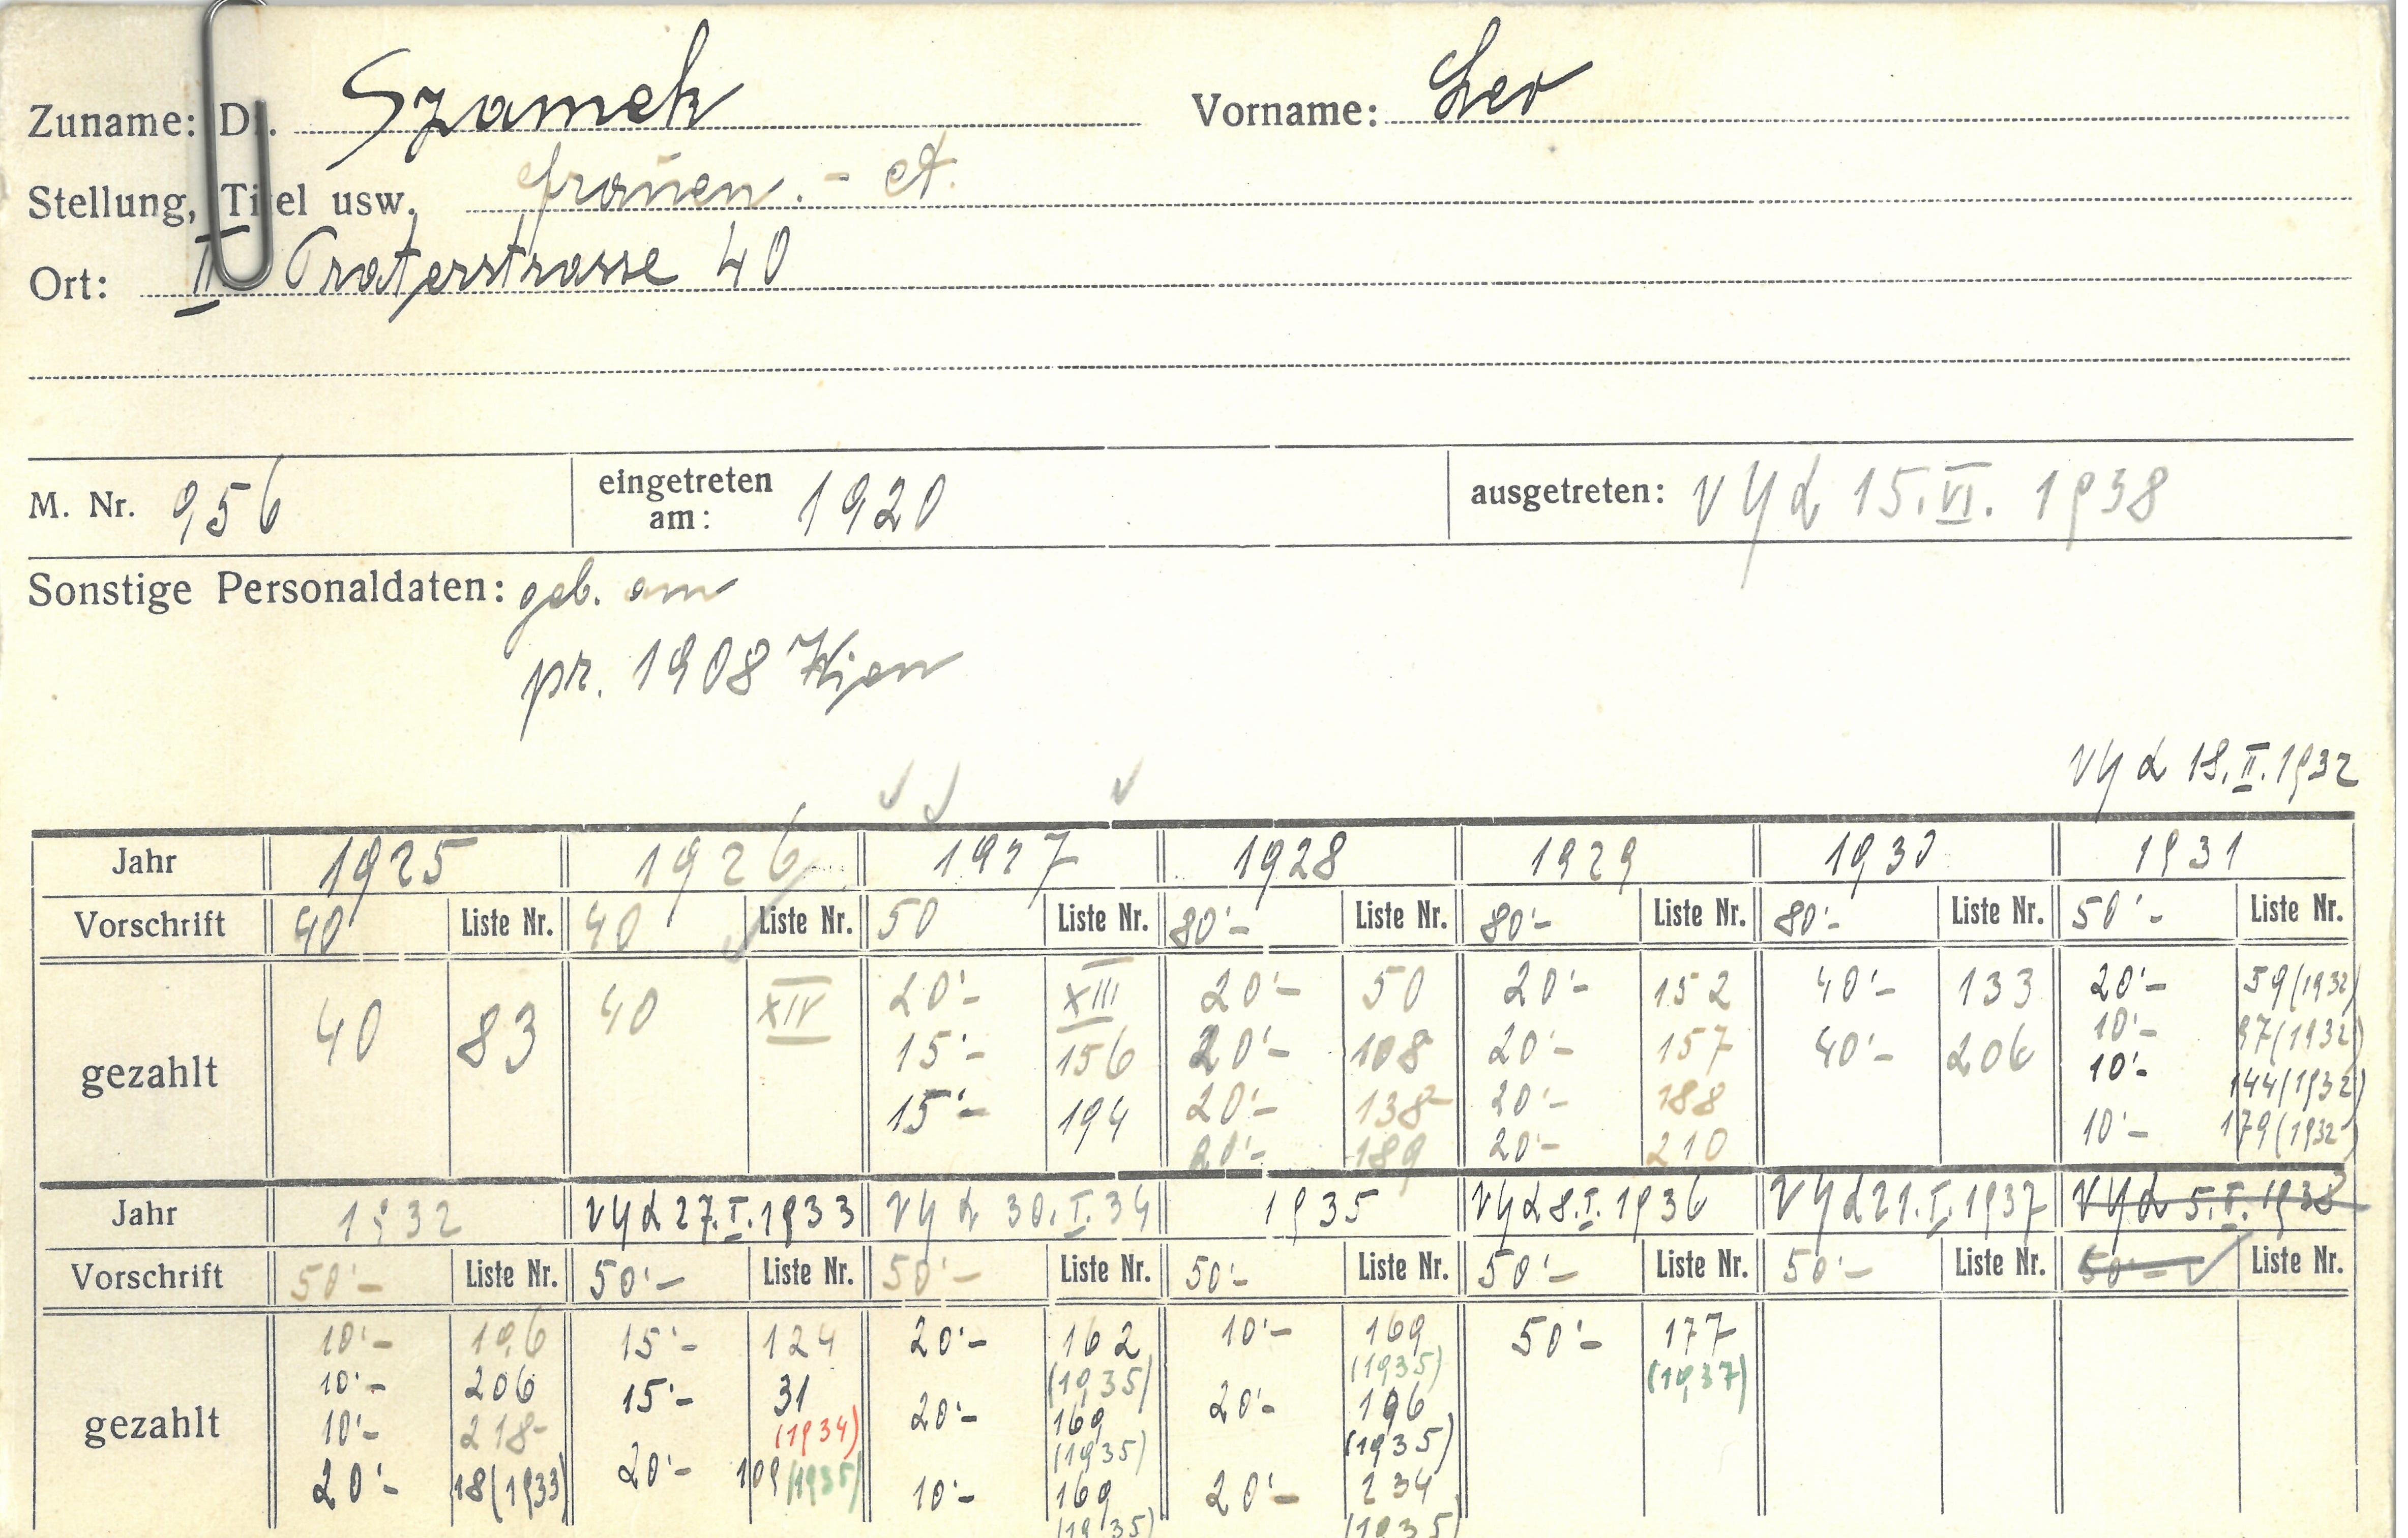 Zuname: Dr. Szamek Vorname: Leo
Stellung, Titel usw. frauen.- A.
Ort: II Praterstrasse 40
M. Nr. 956 eingetreten am: 1920 ausgetreten: VyL 15.VI. 1938
Sonstige Personaldaten: geb. am
pr. 1908 Wien
VyL 18.II.1932
Jahr 1925 1926 1927 1928 1929 1930 1931
Vorschrift 40 Liste Nr. 40 Liste Nr. 50 Liste Nr. 80'- Liste Nr. 80'- Liste Nr. 80'- Liste Nr. 50'- Liste Nr.
gezahlt
40 83 40 XIV 20'- XIII 20'- 50 20'- 152 40'- 133 20'- 59(1932)
15'- 156 20'- 108 20'- 157 40'- 206 10'- 97(1932)
15'- 194 20'- 138 20'- 188 10'- 144(1932)
20'- 189 20'- 210 10'- 179(1932)
Jahr 1932 VyL 27.I.1933 VyL 30.I.34 1935 VyL 8.I.1936 VyL 21.I.1937 VyL 5.I.1938
Vorschrift 50'- Liste Nr. 50'- Liste Nr. 50'- Liste Nr. 50'- Liste Nr. 50'- Liste Nr. 50'- Liste Nr. 50'- Liste Nr.
gezahlt
10'- 196 15'- 124 20'- 162 (1935) 10'- 169 (1935) 50'- 177 (1937)
10'- 206 15'- 31 (1934) 20'- 169 (1935) 20'- 196 (1935)
10'- 218 20'- 109 (1935) 10'- 169 (1935) 20'- 234 (1935)
20'- 18(1933)